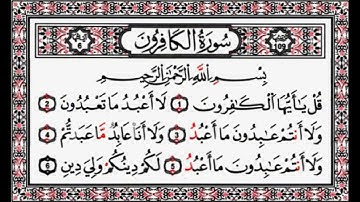 سُورَةُ الْكَافِرُونَ
بِسْمِ اللَّهِ الرَّحْمَٰنِ الرَّحِيمِ
قُلْ يَا أَيُّهَا الْكَٰفِرُونَ 1 لَا أَعْبُدُ مَا تَعْبُدُونَ 2
وَلَا أَنتُمْ عَٰبِدُونَ مَا أَعْبُدُ 3 وَلَا أَنَا عَابِدٌ مَّا عَبَدتُّمْ 4
وَلَا أَنتُمْ عَٰبِدُونَ مَا أَعْبُدُ 5 لَكُمْ دِينُكُمْ وَلِيَ دِينِ 6